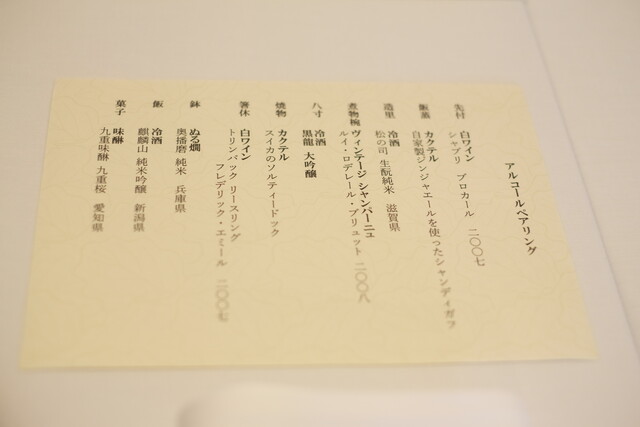 アルコールペアリング
先付 白ワイン
シャブリ ブロカール 二〇〇七
飯蒸 カクテル
自家製ジンジャエールを使ったシャンディガフ
造里 冷酒
松の司 生酛純米 滋賀県
煮物椀 ヴィンテージ シャンパーニュ
ルイ・ロデレール・ブリュット 二〇〇八
八寸 冷酒
黒龍 大吟醸
焼物 カクテル
スイカのソルティードック
箸休 白ワイン
トリンバック リースリング
フレデリック・エミール 二〇〇七
鉢 ぬる燗
奥播磨 純米 兵庫県
飯 冷酒
麒麟山 純米吟醸 新潟県
菓子 味醂
九重味醂 九重桜 愛知県